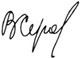 ВСеров